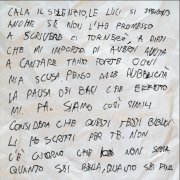 CALA IL SILENZIO, LE LUCI SI
ANCHE SE NON L'HO PROMESSO
A SCRIVERE CI TORNERÒ, A DIRTI
CHE MI IMPORTA DI AVERTI
A CANTARE TANTO FORTE OGNI
MIA SCUSA PENSO ALLA PUBBLICITÀ
LA PAUSA DEI BACI CHE
MI. PÀ. SIAMO COSÌ SIMILI
CONSIDERA CHE QUESTI TESTI
LI HO SCRITTI PER TE. NON
C'È GIORNO CHE NON SERVA
QUANTO SEI BELLA, QUANTO SEI